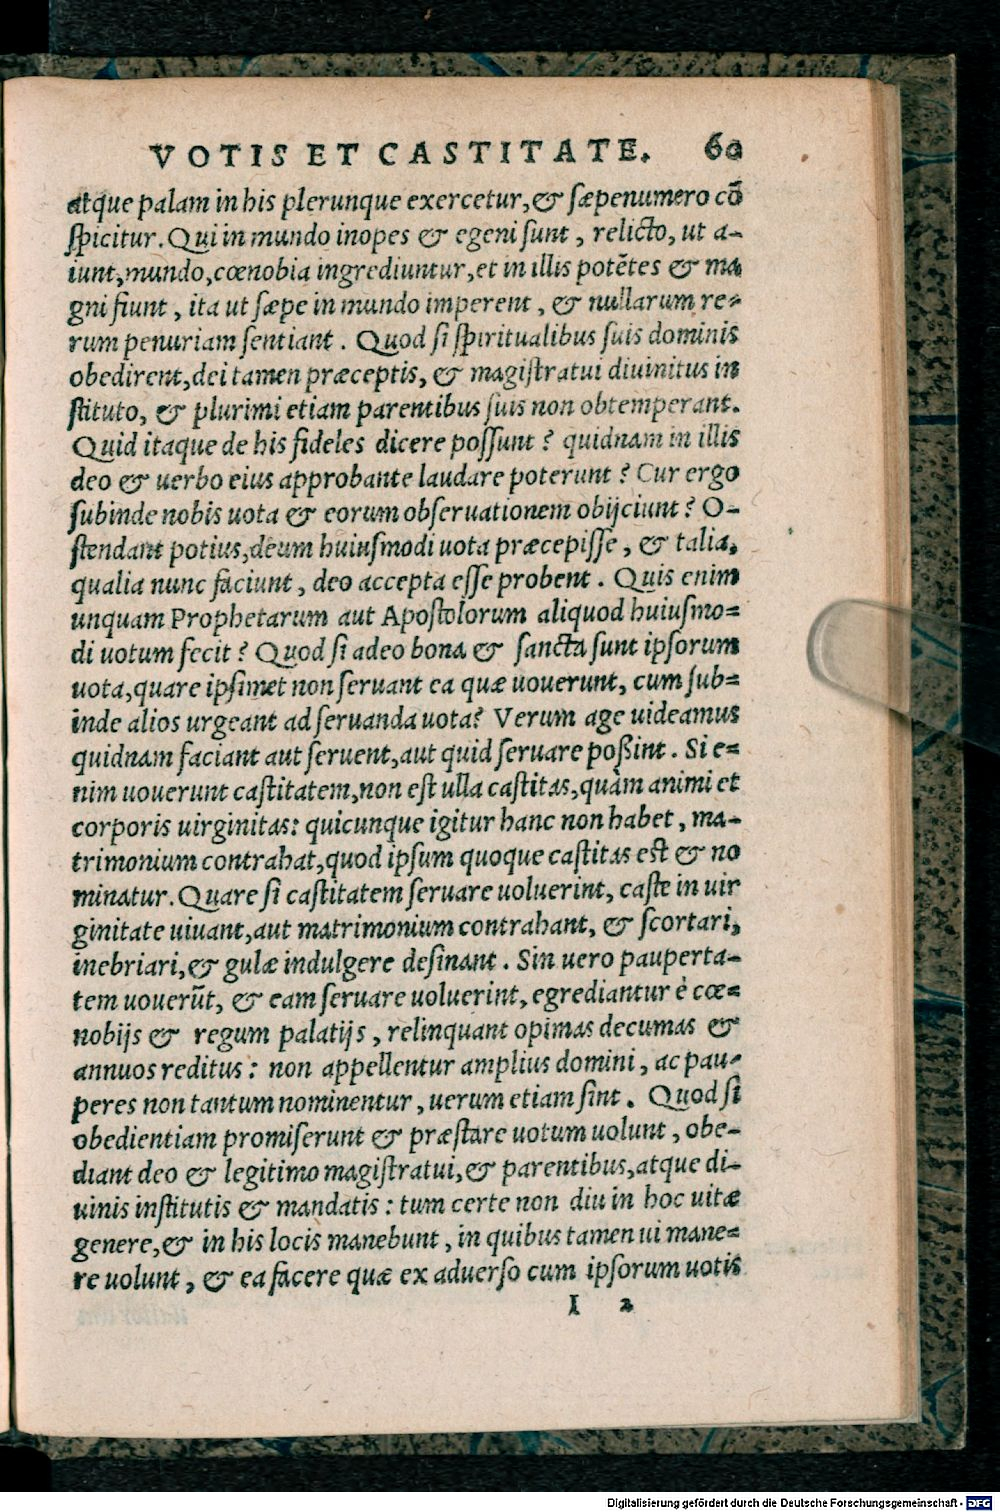 VOTIS ET CASTITATE. 60
atque palam in his plerunque exercetur, & sæpenumero cõ
spicitur. Qui in mundo inopes & egeni sunt, relicto, ut a-
iunt, mundo, cœnobia ingrediuntur, et in illis potẽtes & ma
gni fiunt, ita ut sæpe in mundo imperent, & nullarum re-
rum penuriam sentiant. Quod si spiritualibus suis dominis
obedirent, dei tamen præceptis, & magistratui divinitus in
stituto, & plurimi etiam parentibus suis non obtemperant.
Quid itaque de his fideles dicere possunt? quidnam in illis
deo & uerbo eius approbante laudare poterunt? Cur ergo
subinde nobis uota & eorum obseruationem obijciunt? O-
stendant potius, deum huiusmodi uota præcepisse, & talia,
qualia nunc faciunt, deo accepta esse probent. Quis enim
unquam Prophetarum aut Apostolorum aliquod huiusmo-
di uotum fecit? Quod si adeo bona & sancta sunt ipsorum
uota, quare ipsimet non seruant ea quæ uouerunt, cum sub-
inde alios urgeant ad seruanda uota? Verum age uideamus
quidnam faciant aut seruent, aut quid seruare poßint. Si e-
nim uouerunt castitatem, non est ulla castitas, quàm animi et
corporis uirginitas: quicunque igitur hanc non habet, ma-
trimonium contrahat, quod ipsum quoque castitas est & no
minatur. Quare si castitatem seruare uoluerint, caste in uir
ginitate uiuant, aut matrimonium contrahant, & scortari,
inebriari, & gulæ indulgere desinant. Sin uero pauperta-
tem uouerũt, & eam seruare uoluerint, egrediantur è cœ-
nobijs & regum palatijs, relinquant opimas decumas &
annuos reditus: non appellentur amplius domini, ac pau-
peres non tantum nominentur, uerum etiam sint. Quod si
obedientiam promiserunt & præstare uotum uolunt, obe-
diant deo & legitimo magistratui, & parentibus, atque di-
uinis institutis & mandatis: tum certe non diu in hoc uitæ
genere, & in his locis manebunt, in quibus tamen ui mane-
re uolunt, & ea facere quæ ex aduerso cum ipsorum uotis
I 2
Digitalisierung gefördert durch die Deutsche Forschungsgemeinschaft - DFG